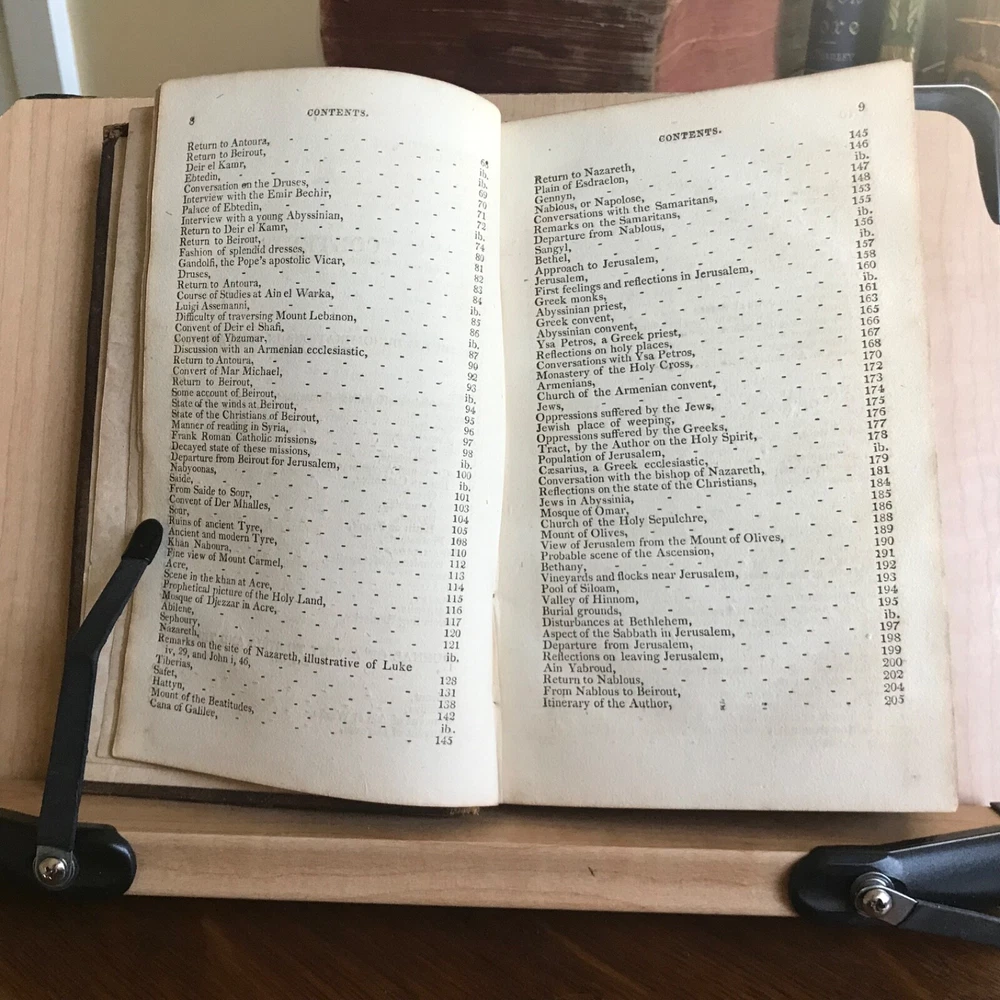 8 CONTENTS.
Return to Antoura,
Return to Beirout, 68
Deir el Kamr, ib.
Ebtedin, ib.
Conversation on the Druses, 69
Interview with the Emir Bechir, 70
Palace of Ebtedin, 71
Interview with a young Abyssinian, 72
Return to Deir el Kamr, ib.
Return to Beirout, 74
Fashion of splendid dresses, 80
Gandolfi, the Pope's apostolic Vicar, 81
Druses, 82
Return to Antoura, 83
Course of Studies at Ain el Warka, 84
Luigi Assemanni, ib.
Difficulty of traversing Mount Lebanon, 85
Convent of Deir el Shafi, 86
Convent of Ybzumar, ib.
Discussion with an Armenian ecclesiastic, 87
Return to Antoura, 90
Convert of Mar Michael, 92
Return to Beirout, 93
Some account of Beirout, ib.
State of the winds at Beirout, 94
State of the Christians of Beirout, 95
Manner of reading in Syria, 96
Frank Roman Catholic missions, 97
Decayed state of these missions, 98
Departure from Beirout for Jerusalem, ib.
Nabyoonas, 100
Saide, ib.
From Saide to Sour, 101
Convent of Der Mhalles, 103
Sour, 104
Ruins of ancient Tyre, 105
Ancient and modern Tyre, 108
Khan Nahoura, 110
Fine view of Mount Carmel, 113
Acre, 114
Scene in the khan at Acre, 115
Prophetical picture of the Holy Land, 116
Mosque of Djezzar in Acre, 117
Abilene, 120
Sephoury, 121
Nazareth, ib.
Remarks on the site of Nazareth, illustrative of Luke
iv, 29, and John i, 46, 128
Tiberias, 131
Safet, 138
Hattyn, 142
Mount of the Beatitudes, ib.
Cana of Galilee, 145
CONTENTS. 9
Return to Nazareth, 145
Plain of Esdraelon, 146
Gennyn, ib.
Nablous, or Napolose, 147
Conversations with the Samaritans, 148
Remarks on the Samaritans, 153
Departure from Nablous, 155
Sangyl, ib.
Bethel, 156
Approach to Jerusalem, ib.
Jerusalem, 157
First feelings and reflections in Jerusalem, 158
Greek monks, 160
Abyssinian priest, ib.
Greek convent, 161
Abyssinian convent, 163
Ysa Petros, a Greek priest, 165
Reflections on holy places, 166
Conversations with Ysa Petros, 167
Monastery of the Holy Cross, 168
Armenians, 170
Church of the Armenian convent, 172
Jews, 173
Oppressions suffered by the Jews, 174
Jewish place of weeping, 175
Oppressions suffered by the Greeks, 176
Tract, by the Author on the Holy Spirit, 177
Population of Jerusalem, 178
Cæsarius, a Greek ecclesiastic, ib.
Conversation with the bishop of Nazareth, 179
Reflections on the state of the Christians, 181
Jews in Abyssinia, 184
Mosque of Omar, 185
Church of the Holy Sepulchre, 186
Mount of Olives, 188
View of Jerusalem from the Mount of Olives, 189
Probable scene of the Ascension, 190
Bethany, 191
Vineyards and flocks near Jerusalem, 192
Pool of Siloam, 193
Valley of Hinnom, 194
Burial grounds, 195
Disturbances at Bethlehem, ib.
Aspect of the Sabbath in Jerusalem, 197
Departure from Jerusalem, 198
Reflections on leaving Jerusalem, 199
Ain Yabroud, 200
Return to Nablous, 202
From Nablous to Beirout, 204
Itinerary of the Author, 205